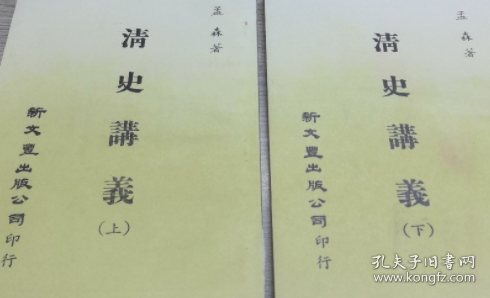 孟森著
清史講義
(上)
新文豐出版公司印行
孟森著
清史講義
(下)
新文豐出版公司印行
孔夫子旧书网
www.kongfz.com